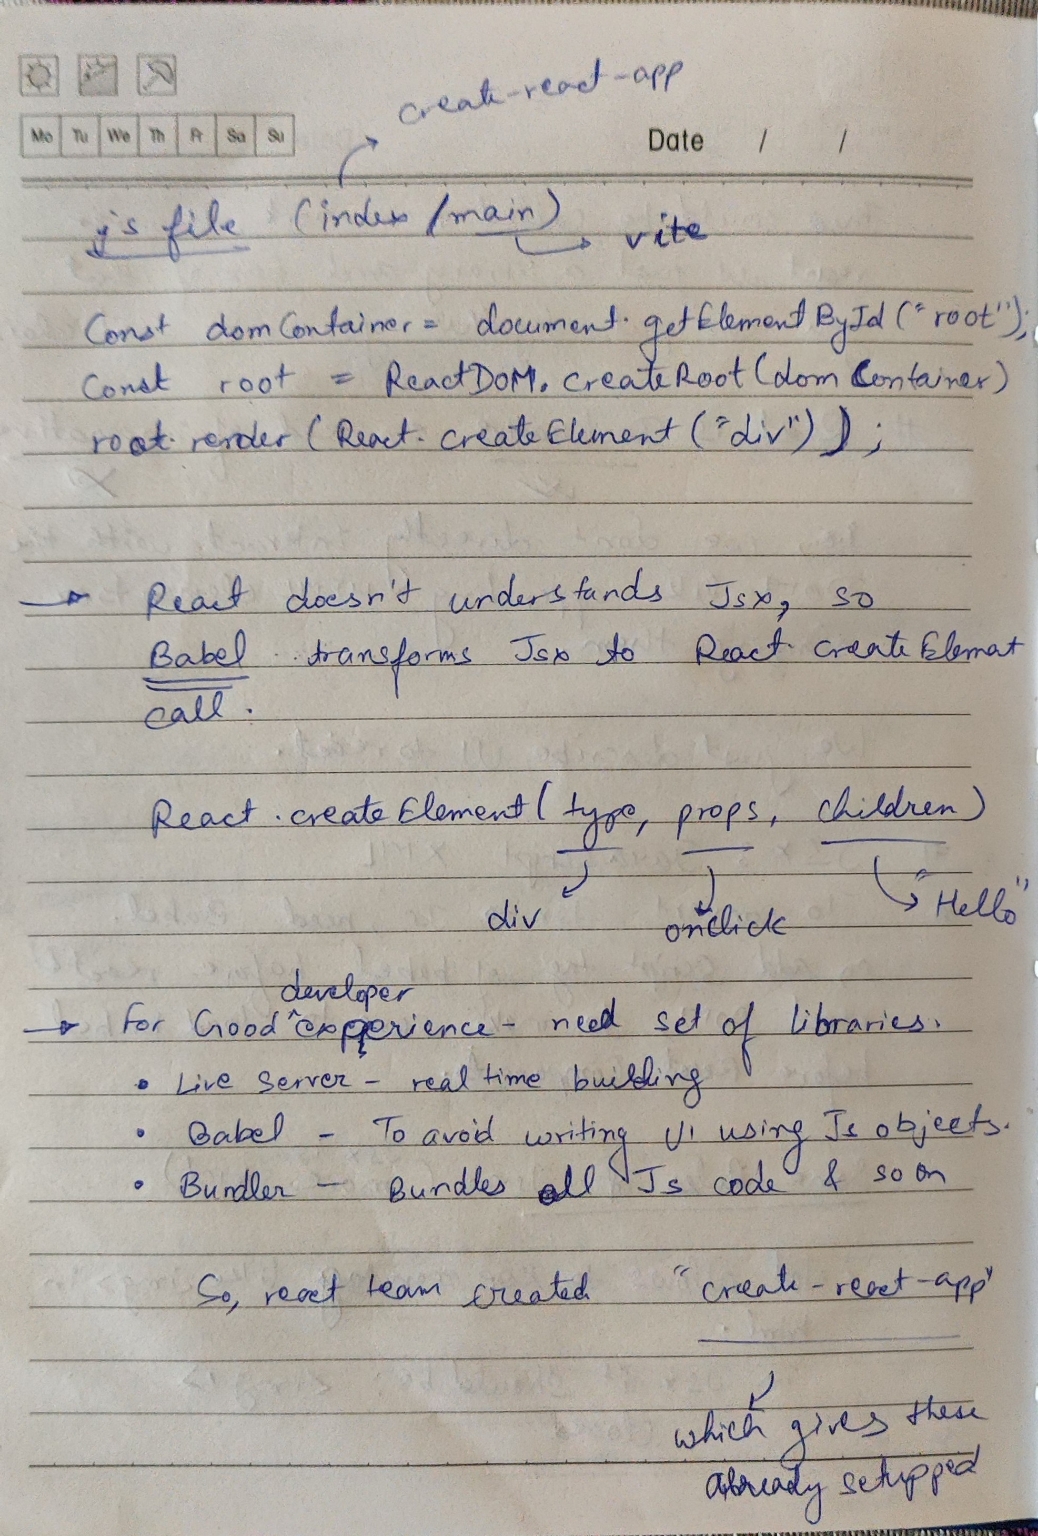 create-react-app
Mo Tu We Th Fr Sa Su
Date / /
js file (index/main)
vite
Const domContainer = document.getElementById("root");
Const root = ReactDOM.createRoot(domContainer)
root.render(React.createElement("div"));
→ React doesn't understands Jsx, so
Babel transforms Jsx to React createElemat
call.
React.createElement(type, props, children)
div onclick "Hello"
developer
→ For Good ^ experience - need set of libraries.
• Live Server - real time building
• Babel - To avoid writing UI using Js objects.
• Bundler - Bundles all Js code & so on
So, react team created "create-react-app"
which gives these
already setupped